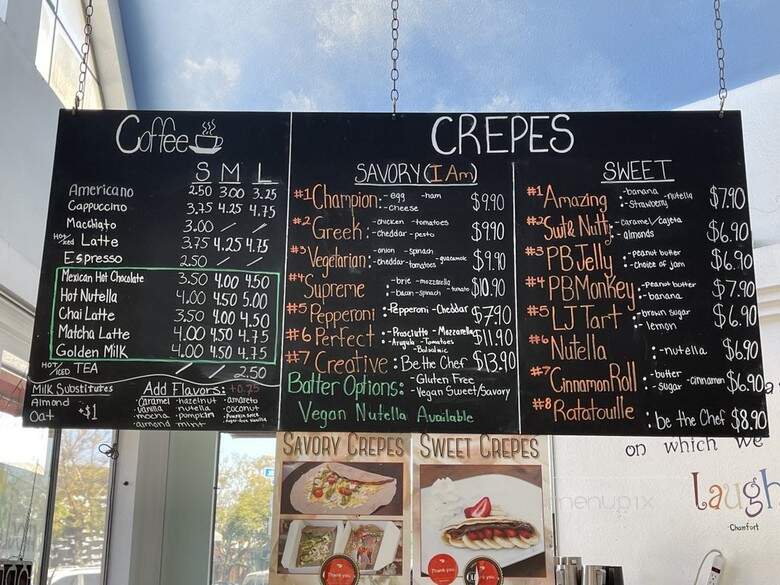 Coffee
S M L
Americano 2.50 3.00 3.25
Cappuccino 3.75 4.25 4.75
Macchiato 3.00 / /
Hot/Iced Latte 3.75 4.25 4.75
Espresso 2.50 / /
Mexican Hot Chocolate 3.50 4.00 4.50
Hot Nutella 4.00 4.50 5.00
Chai Latte 3.50 4.00 4.50
Matcha Latte 4.00 4.50 4.75
Golden Milk 4.00 4.50 4.75
Hot/Iced TEA / / 2.50
Milk Substitutes
Almond
Oat
+$1
Add Flavors: +0.75
caramel -hazelnut -amareto
vanilla -nutella -coconut
mocha -pumpkin -Pumpkin spice
almond mint
CREPES
SAVORY (I Am)
#1 Champion: -egg -ham
-cheese $9.90
#2 Greek: -chicken -tomatoes
-cheddar -pesto $9.90
#3 Vegetarian: -onion -spinach
-cheddar -tomatoes -guacamole $9.90
#4 Supreme -brie -mozzarella
-bacon -spinach -tomato $10.90
#5 Pepperoni -Pepperoni -Cheddar $7.90
#6 Perfect -Prosciutto -Mozzarella
-Arugula -Tomatoes
-Balsamic $11.90
#7 Creative: Be the Chef $13.90
Batter Options: -Gluten Free
-Vegan Sweet/Savory
Vegan Nutella Available
SWEET
#1 Amazing -banana -nutella
-strawberry $7.90
#2 Suite Nutty: -caramel/cajeta
-almonds $6.90
#3 PB Jelly -peanut butter
-choice of jam $6.90
#4 PB Monkey -peanut butter
-banana $7.90
#5 LJ Tart -brown sugar
-lemon $6.90
#6 Nutella -nutella $6.90
#7 Cinnamon Roll -butter
-sugar -cinnamon $6.90
#8 Ratatouille : be the Chef $8.90
SAVORY CREPES
SWEET CREPES
Thank you
Thank you
on which we
Laugh
Comfort
menupix